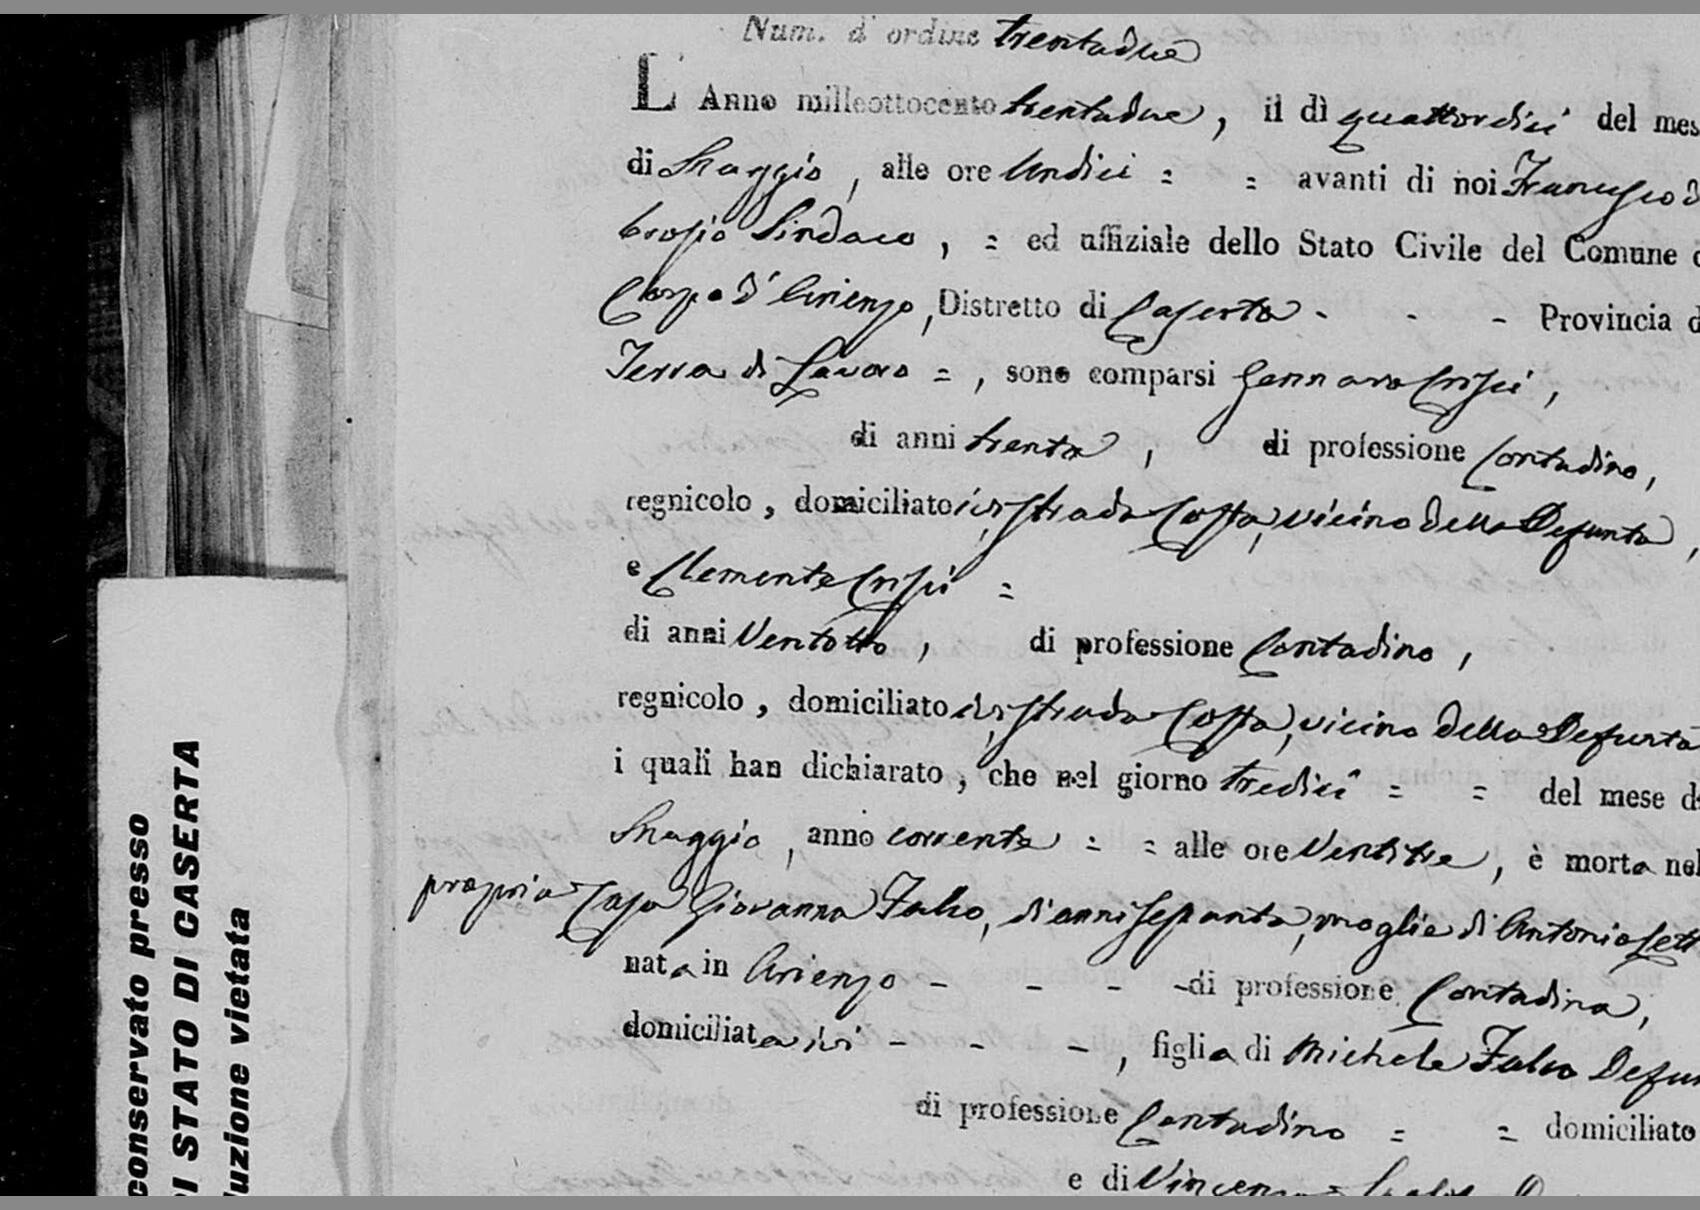 Num. d' ordine trentadue
L' Anno milleottocento trentadue, il dì quattordici del mes
di Maggio, alle ore Undici = = avanti di noi Francesco d
brosio Sindaco, = ed uffiziale dello Stato Civile del Comune d
Corpo d' Arienzo, Distretto di Caserta - - - Provincia d
Terra di Lavoro =, sono comparsi Gennaro Crisci,
di anni trenta, di professione Contadino,
regnicolo, domiciliato ivi strada Costa, vicino della Defunta,
e Clemente Crisci =
di anni Ventotto, di professione Contadino,
regnicolo, domiciliato ivi strada Costa, vicino della Defunta
i quali han dichiarato, che nel giorno tredici = = del mese d
Maggio, anno corrente = = alle ore Ventitre, è morta nel
propria Casa Giovanna Falco, di anni Settanta, moglie di Antonio Lett
nata in Arienzo - - - - di professione Contadina,
domiciliata ivi - - -, figlia di Michele Falco Defun
di professione Contadino = = domiciliato
e di Vincenza
conservato presso
DI STATO DI CASERTA
duzione vietata